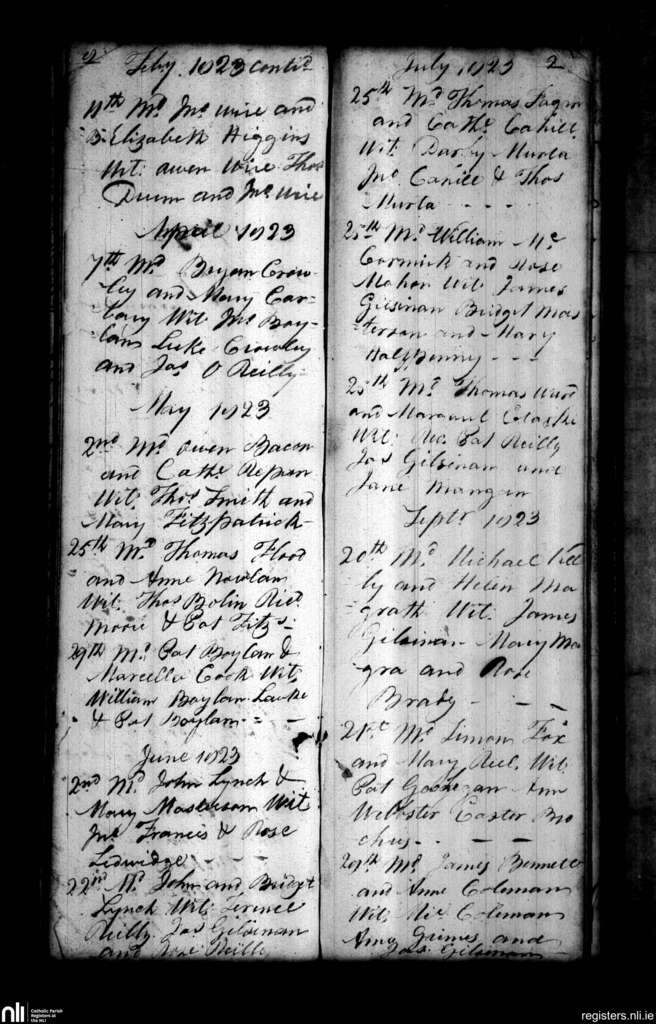 2
Feby. 1823 contd
11th Md. Jno. Wire and
Elizabeth Higgins
Wit. Owen Wire Thos
Dunn and Jno. Wire
April 1823
7th Md. Bryan Crow-
ley and Mary Car-
Wit. Jno. Boy-
lan Luke Crowley
and Jas. O Reilly
May 1823
2nd Md. Owen Bacon
and Cathe.
Wit. Thos. Smith and
Mary Fitzpatrick
25th Md. Thomas Flood
and Anne Nowlan
Wit. Thos Bolin Richd.
Moore & Pat Fitzs-
29th Md. Pat Boylan &
Marcella Cook Wit.
William Boylan
& Pat Boylan
June 1823
2nd Md. John Lynch &
Mary Masterson Wit
Jno. Francis & Rose
Ledwidge
22nd Md. John and Bridget
Lynch Wit. Terence
Reilly Jas Gilsinan
and Rose Reilly
July 1823
2
25th Md Thomas Fagan
and Cathe. Cahill
Wit. Darby Murta
Jno. & Thos
Murta
25th Md William Mc
Cormick and Rose
Mahon Wit. James
Gilsinan Bridget Mas
terson and Mary
Halfpenny
25th Md Thomas Ward
and Margaret
Wit. Pat Reilly
Jas Gilsinan and
Jane Mangan
Septr 1823
20th Md Michael Kel
ly and Helen Ma
grath Wit. James
Gilsinan Mary Ma
gra and Rose
Brady
21st Md. Simon Fox
and Mary Wit.
Pat Geoghegan Ann
Webster Easter Bro
phy
29th Md. James Bennett
and Anne Coleman
Wit. Coleman
Amy Grimes and
Jas. Gilsinan
nli
Catholic Parish
Registers at
the NLI
registers.nli.ie